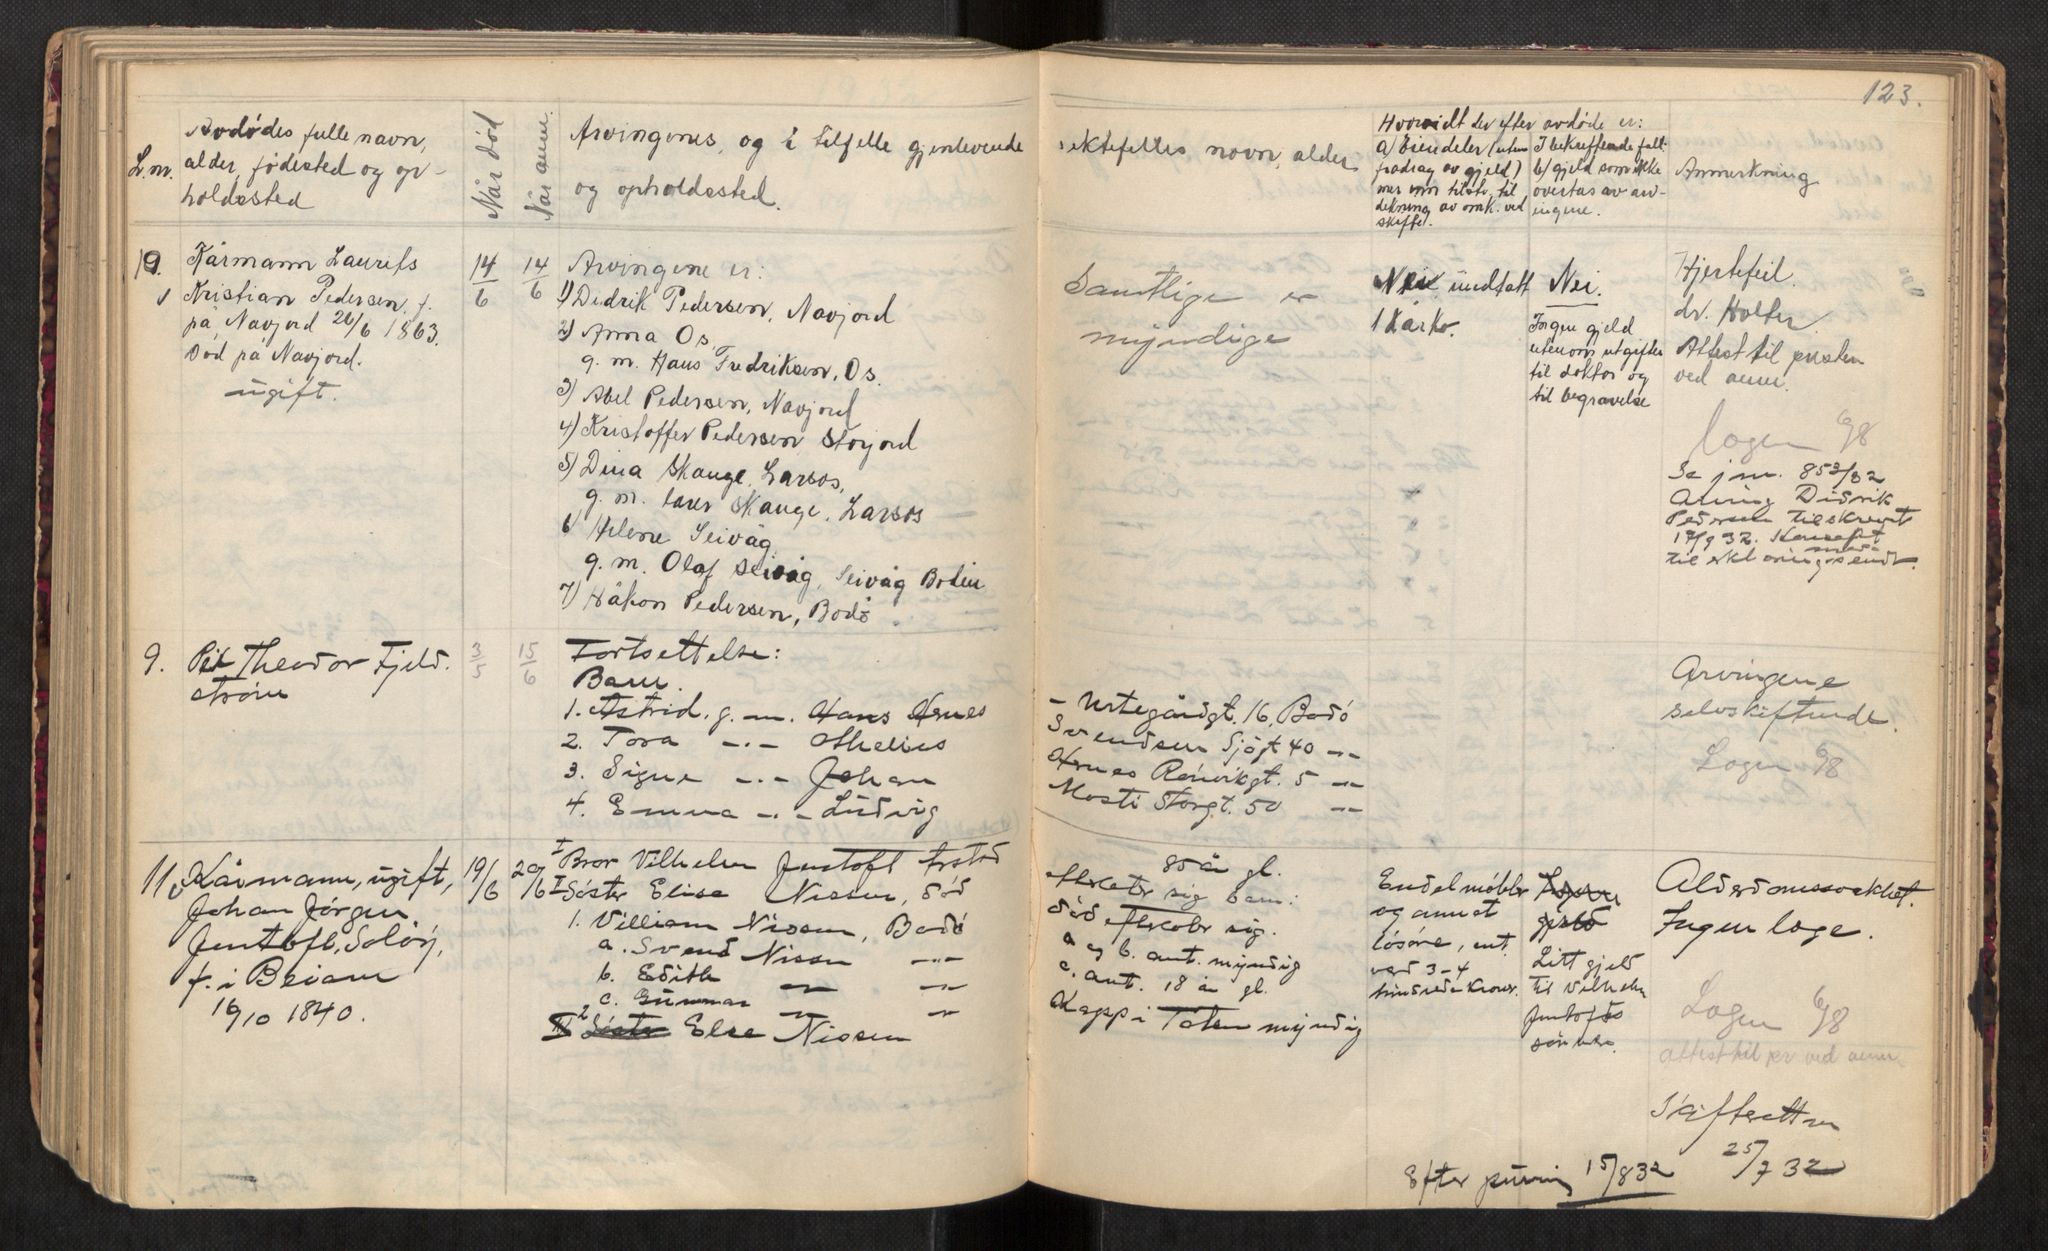 123.
L.nr.
Avdødes fulle navn,
alder, fødested og op-
holdssted
Når død
Når anm.
Arvingenes, og i tilfelle gjenlevende
og opholdssted.
ektefelles navn, alder
Hvorvidt der efter avdøde er:
a) Eiendeler (uten
fradrag av gjeld)
mer enn tilstr. til
dekning av omk. ved
skiftet.
I bekreftende fall
b) gjeld som ikke
overtas av arv-
ingene.
Anmerkning
10.
Kårmann Laurits
Kristian Pedersen, f.
på Navjord 26/6 1863.
Død på Navjord.
ugift.
14/6
14/6
Arvingene er:
1) Didrik Pedersen, Navjord
2) Anna Os,
g. m. Hans Fredriksen, Os.
3) Abel Pedersen, Navjord
4) Kristoffer Pedersen Storjord
5) Dina Skauge, Larsos,
g. m. Lars Skauge, Larsos
6) Helene Seivåg
g. m. Olaf Seivåg, Seivåg Bodin
7) Håkon Pedersen, Bodø.
Samtlige er
myndige
Nei undtatt
1 Kårko.
Nei.
Ingen gjeld
utenom utgifter
til doktor og
til begravelse
Hjertefeil.
dr. Holter.
Attest til presten
ved anm.
Logen 6/8
Se jnr. 853/32
Arving Didrik
Pedersen tilskrevt
17/9 32. Konsept
til erklæring medsendt.
9.
Per Theodor Fjeld-
strøm
3/5
15/6
Fortsettelse:
Barn.
1. Astrid, g. m. Hans Hernes
2. Tora -"- Othelius
3. Signe -"- Johan
4. Emma -"- Ludvig
- Urtegårdgt. 16, Bodø
Svendsen Sjøgt 40 -"-
Hernes Rensvikgt. 5 -"-
Mosti Storgt. 50 -"-
Arvingene
selvskiftende.
Logen 6/8
11
Kårmann, ugift,
Johan Jørgen
Jentoft, Soløy,
f. i Beiarn
16/10 1840.
19/6
20/6
I Bror Vilhelm Jentoft Arstad
I Søster Elise Nissen, død
1. Villiam Nissen, Bodø
a. Svend Nissen -"-
b. Edith -"- -"-
c. Gunnar -"- -"-
2 Søster Else Nissen
85 år gl.
efterlater sig barn:
død efterlater sig.
a og b. ant. myndig
c. ant. 18 år gl.
Kapp i Toten myndig
Endel møbler
og annet
løsøre, ant.
verd 3-4
hundrede kroner.
Ingen
gjeld
Litt gjeld
til Vilhelm
Jentofts
sønner.
Alderdomssvakhet.
Ingen læge.
Logen 6/8
attest til pr ved anm.
Skifteretten
25/7 32
Efter purring 15/8 32